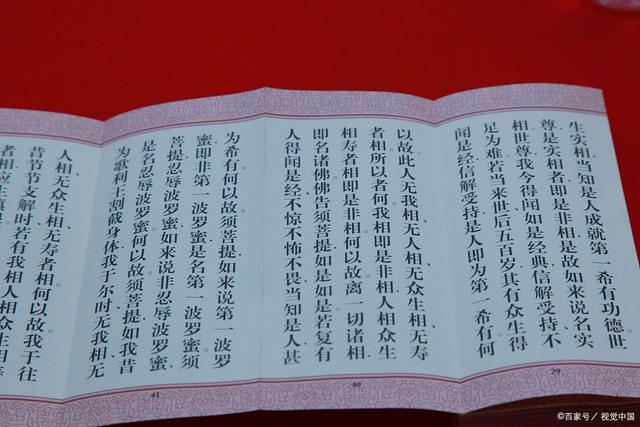 生实相当知是人成就第一希有功德世
尊是实相者即是非相是故如来说名实
相世尊我今得闻如是经典信解受持不
足为难若当来世后五百岁其有众生得
闻是经信解受持是人即为第一希有何
39
以故此人无我相、无人相、无众生相、无寿
者相所以者何我相即是非相人相众生
相寿者相即是非相何以故离一切诸相
即名诸佛佛告须菩提如是如是若复有
人得闻是经不惊不怖不畏当知是人甚
40
为希有何以故须菩提如来说第一波罗
蜜即非第一波罗蜜是名第一波罗蜜须
菩提忍辱波罗蜜如来说非忍辱波罗蜜
是名忍辱波罗蜜何以故须菩提如我昔
为歌利王割截身体我于尔时无我相、无
41
人相、无众生相、无寿者相何以故我于往
昔节节支解时若有我相人相众生相寿
者相应生
©百家号／视觉中国